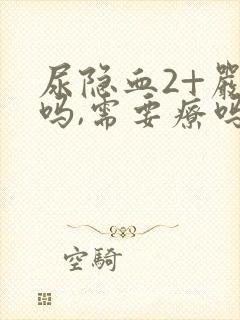 尿隐血2+嚴
吗,需要療吗
空騎